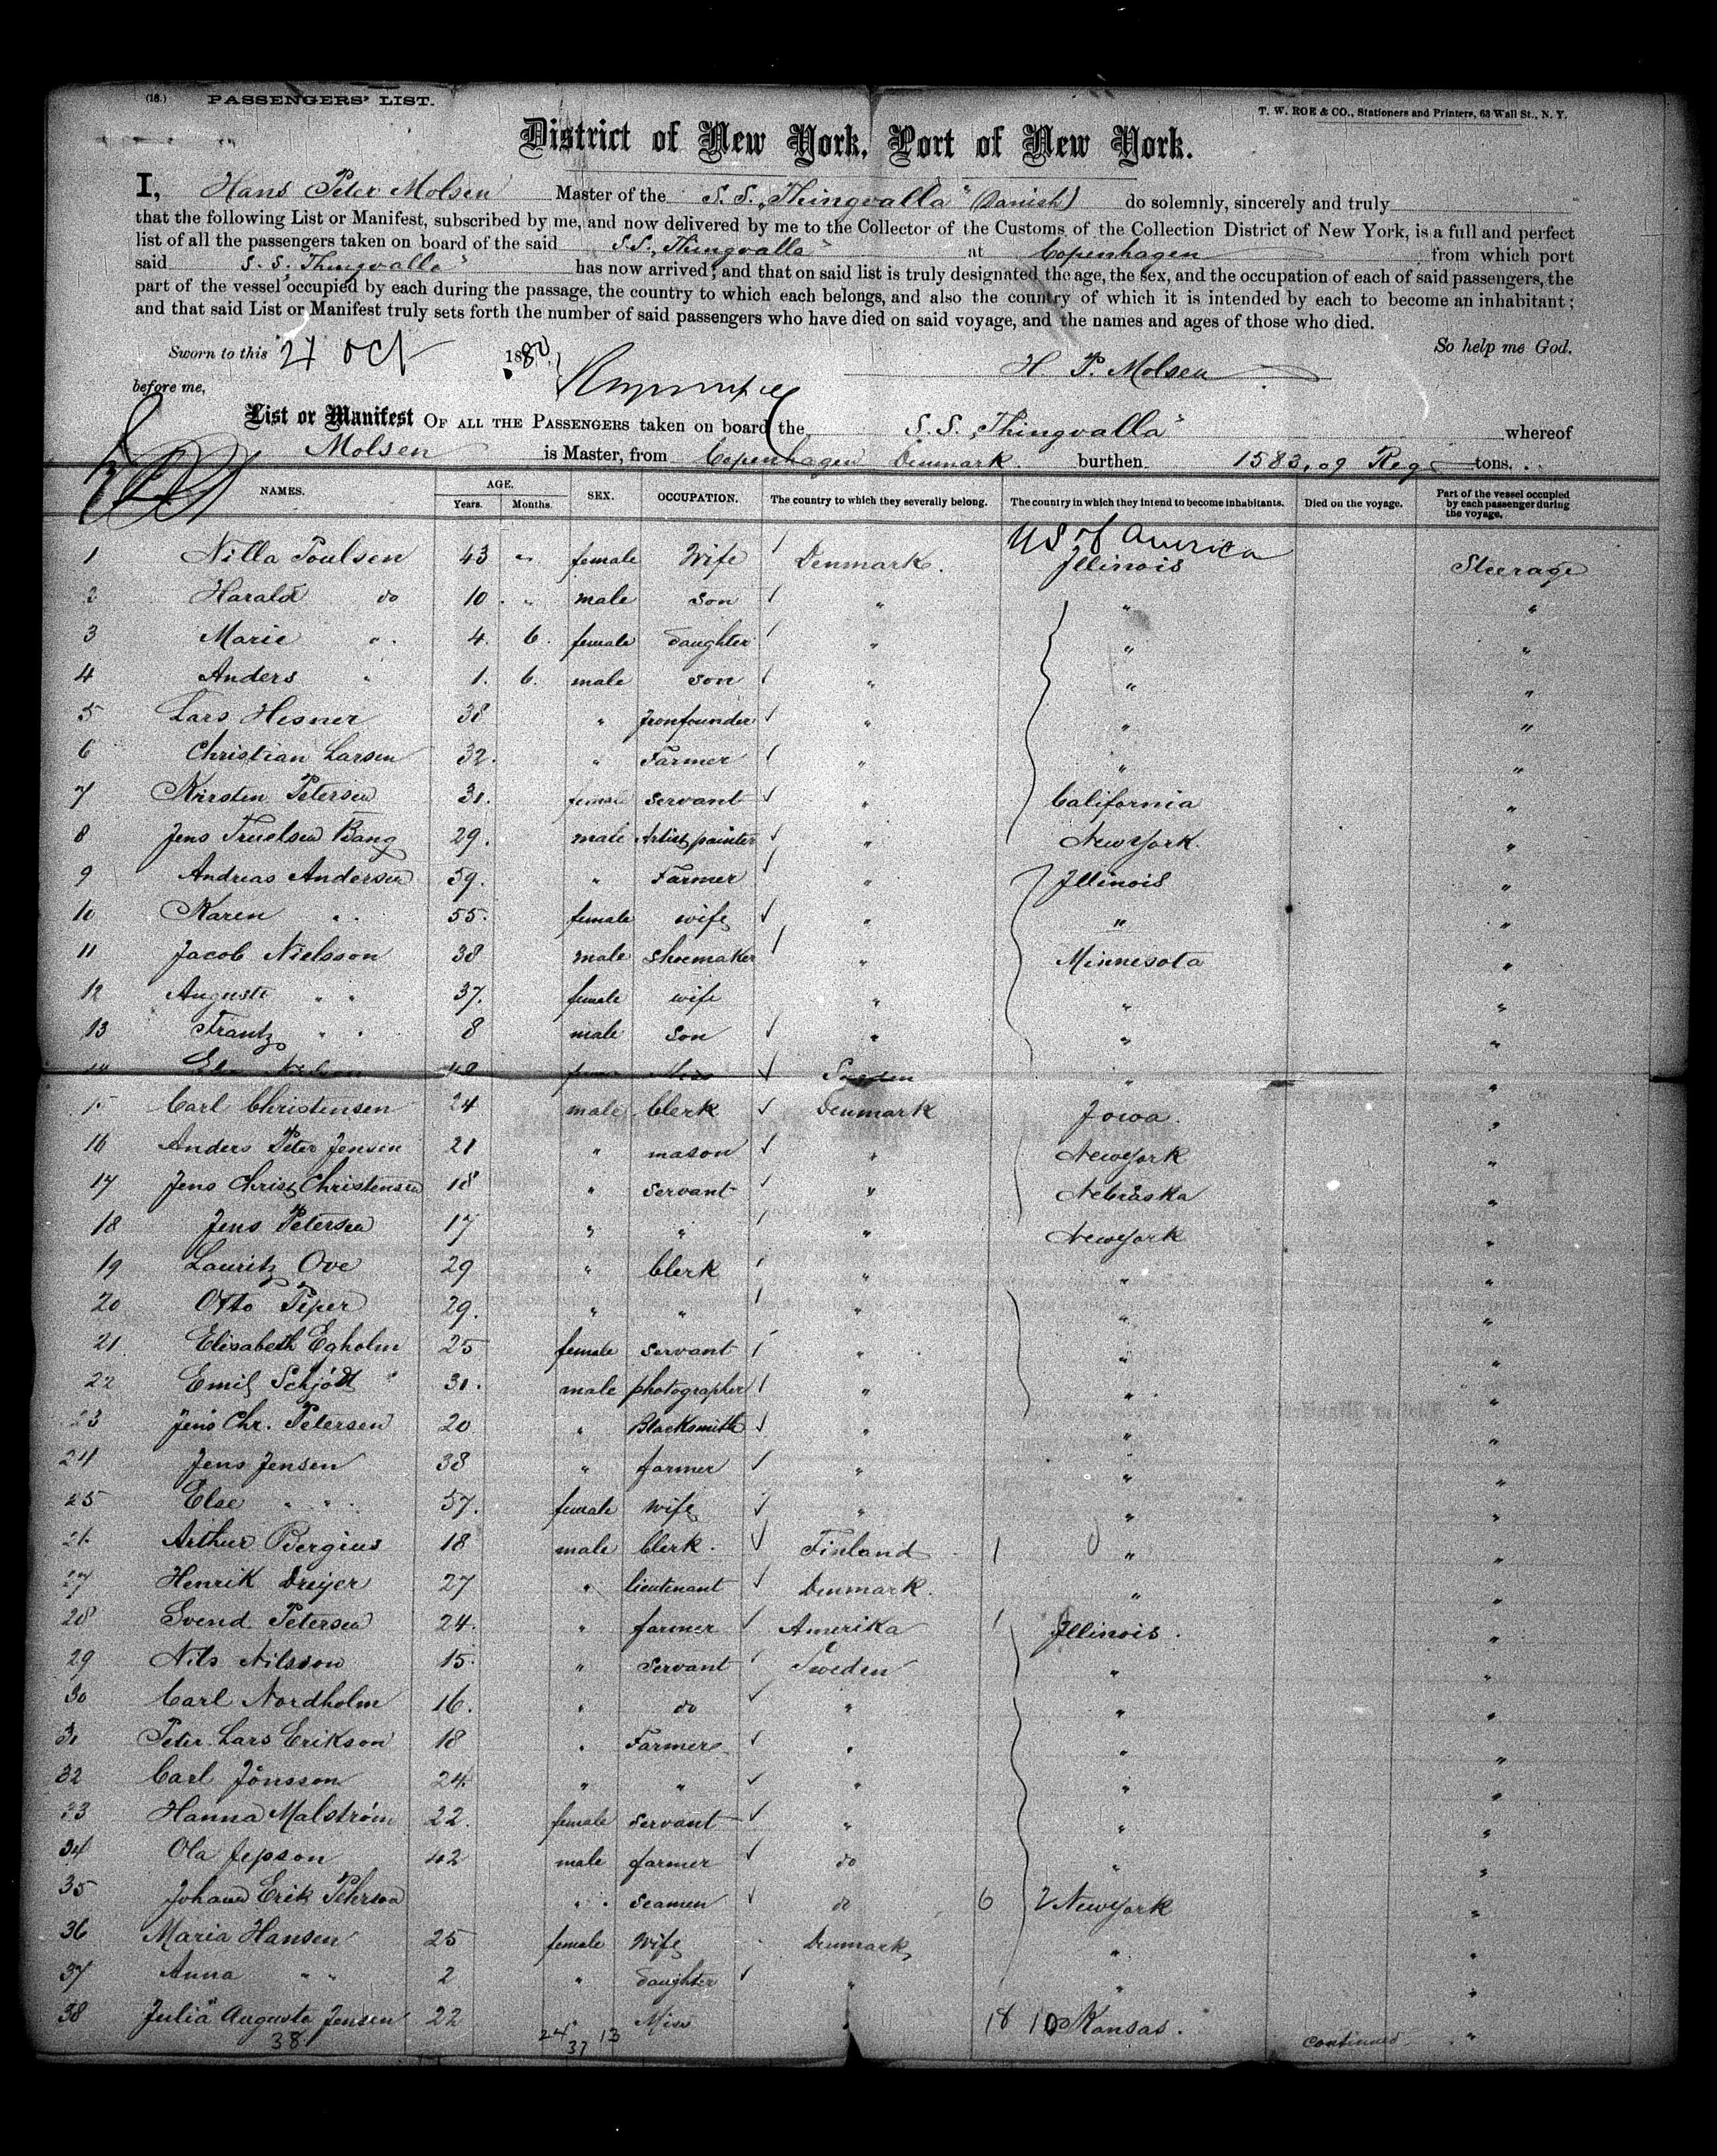 (18.) PASSENGERS' LIST.
T. W. ROE & CO., Stationers and Printers, 63 Wall St., N. Y.
District of New York, Port of New York.
I, Hans Peter Molsen Master of the S. S. "Thingvalla" (Danish) do solemnly, sincerely and truly
that the following List or Manifest, subscribed by me, and now delivered by me to the Collector of the Customs of the Collection District of New York, is a full and perfect
list of all the passengers taken on board of the said S.S. "Thingvalla" at Copenhagen from which port
said S. S. "Thingvalla" has now arrived; and that on said list is truly designated the age, the sex, and the occupation of each of said passengers, the
part of the vessel occupied by each during the passage, the country to which each belongs, and also the country of which it is intended by each to become an inhabitant;
and that said List or Manifest truly sets forth the number of said passengers who have died on said voyage, and the names and ages of those who died.
Sworn to this 21 Oct 1880 So help me God.
before me, H. P. Molsen
List or Manifest OF ALL THE PASSENGERS taken on board the S. S. "Thingvalla" whereof
Molsen is Master, from Copenhagen Denmark burthen 1583,09 Reg tons.
NAMES. AGE. Years. Months. SEX. OCCUPATION. The country to which they severally belong. The country in which they intend to become inhabitants. Died on the voyage. Part of the vessel occupied by each passenger during the voyage.
US of America
1 Nilla Poulsen 43 " female Wife Denmark. Illinois Steerage
2 Harald do 10 " male son " " "
3 Marie " 4. 6. female daughter " " "
4 Anders " 1. 6. male son " " "
5 Lars Hesner 38 " Ironfounder " " "
6 Christian Larsen 32. " Farmer " " "
7 Kirsten Petersen 31. female servant " California "
8 Jens Truelsen Bang 29. male Artist painter " New York. "
9 Andreas Andersen 59. " Farmer " Illinois "
10 Karen " 55. female wife " " "
11 Jacob Nielsson 38 male Shoemaker " Minnesota "
12 Auguste " " 37. female wife " " "
13 Frantz " " 8 male son " " "
14 48 Sweden " "
15 Carl Christensen 24 male Clerk Denmark Iowa. "
16 Anders Peter Jensen 21 " mason " New York "
17 Jens Christ Christensen 18 " servant " Nebraska "
18 Jens Petersen 17 " " " New York "
19 Lauritz Ove 29 " Clerk " " "
20 Otto Piper 29. " " " " "
21. Elisabeth Egholm 25 female servant " " "
22 Emil Schjödt 31. male photographer " " "
23 Jens Chr. Petersen 20 " Blacksmith " " "
24 Jens Jensen 38 " farmer " " "
25 Else " " 57. female wife " " "
26. Arthur Bergius 18 male Clerk. Finland 1 " "
27 Henrik Dreijer 27 " lieutenant Denmark. " "
28 Svend Petersen 24. " farmer Amerika 1 Illinois. "
29 Nils Nilsson 15. " Servant Sweden " "
30 Carl Nordholm 16. " do " " "
31 Peter Lars Erikson 18 " Farmer " " "
32 Carl Jönsson 24. " " " " "
33 Hanna Malström 22. female servant " " "
34 Ola Jepson 42 male farmer do " "
35 Johann Erik Pehrson " seamen do 6 2 New York "
36 Maria Hansen 25 female Wife Denmark " "
37 Anna " " 2 " daughter " " "
38 Julia Augusta Jensen 22 " Miss " 18 10 Kansas. "
38 24 13 continued
37